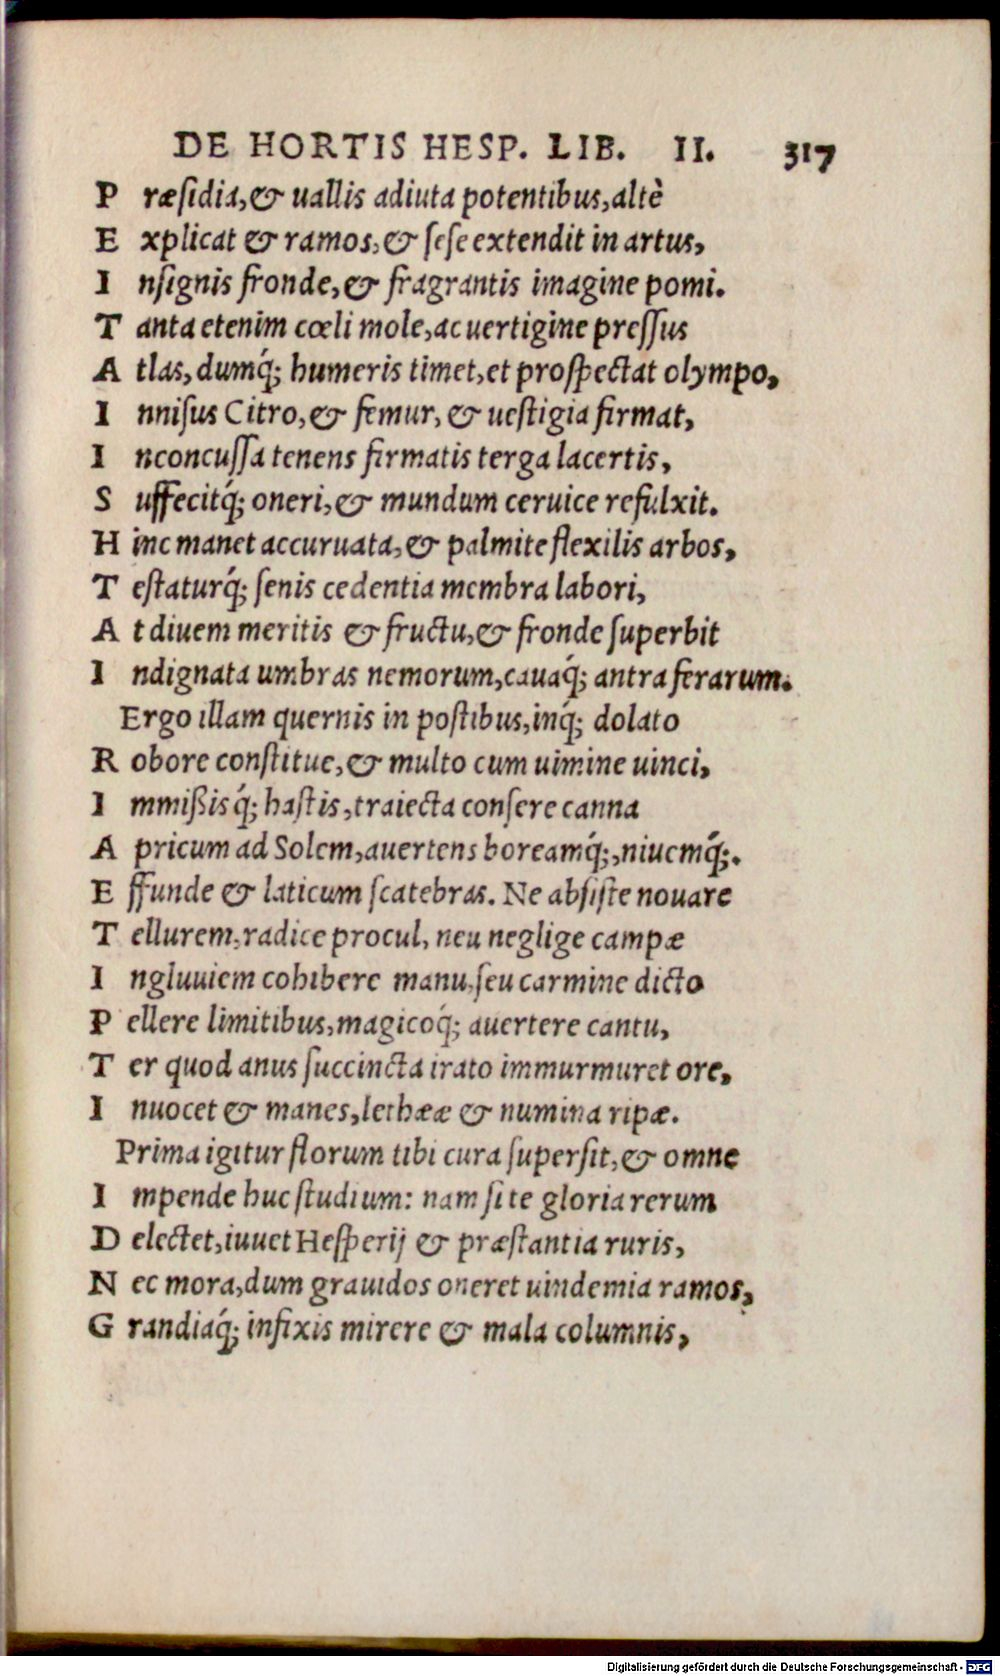 DE HORTIS HESP. LIB. II. 317
P ræſidia,& uallis adiuta potentibus,altè
E xplicat & ramos,& ſeſe extendit in artus,
I nſignis fronde,& fragrantis imagine pomi.
T anta etenim cœli mole,ac uertigine preſſus
A tlas, dumq́; humeris timet,et proſpectat olympo,
I nniſus Citro,& femur, & ueſtigia firmat,
I nconcuſſa tenens firmatis terga lacertis,
S uffecitq́; oneri,& mundum ceruice refulxit.
H inc manet accuruata,& palmite flexilis arbos,
T eſtaturq́; ſenis cedentia membra labori,
A t diuem meritis & fructu,& fronde ſuperbit
I ndignata umbras nemorum,cauaq́; antra ferarum.
Ergo illam quernis in poſtibus,inq́; dolato
R obore conſtitue,& multo cum uimine uinci,
I mmißisq́; haſtis,traiecta conſere canna
A pricum ad Solem,auertens boreamq́;,niuemq́;.
E ffunde & laticum ſcatebras. Ne abſiſte nouare
T ellurem,radice procul, neu neglige campæ
I ngluuiem cohibere manu,ſeu carmine dicto
P ellere limitibus,magicoq́; auertere cantu,
T er quod anus ſuccincta irato immurmuret ore,
I nuocet & manes,lethææ & numina ripæ.
Prima igitur florum tibi cura ſuperſit,& omne
I mpende huc ſtudium: nam ſi te gloria rerum
D electet,iuuet Heſperij & præſtantia ruris,
N ec mora,dum grauidos oneret uindemia ramos,
G randiaq́; infixis mirere & mala columnis,
Digitalisierung gefördert durch die Deutsche Forschungsgemeinschaft - DFG